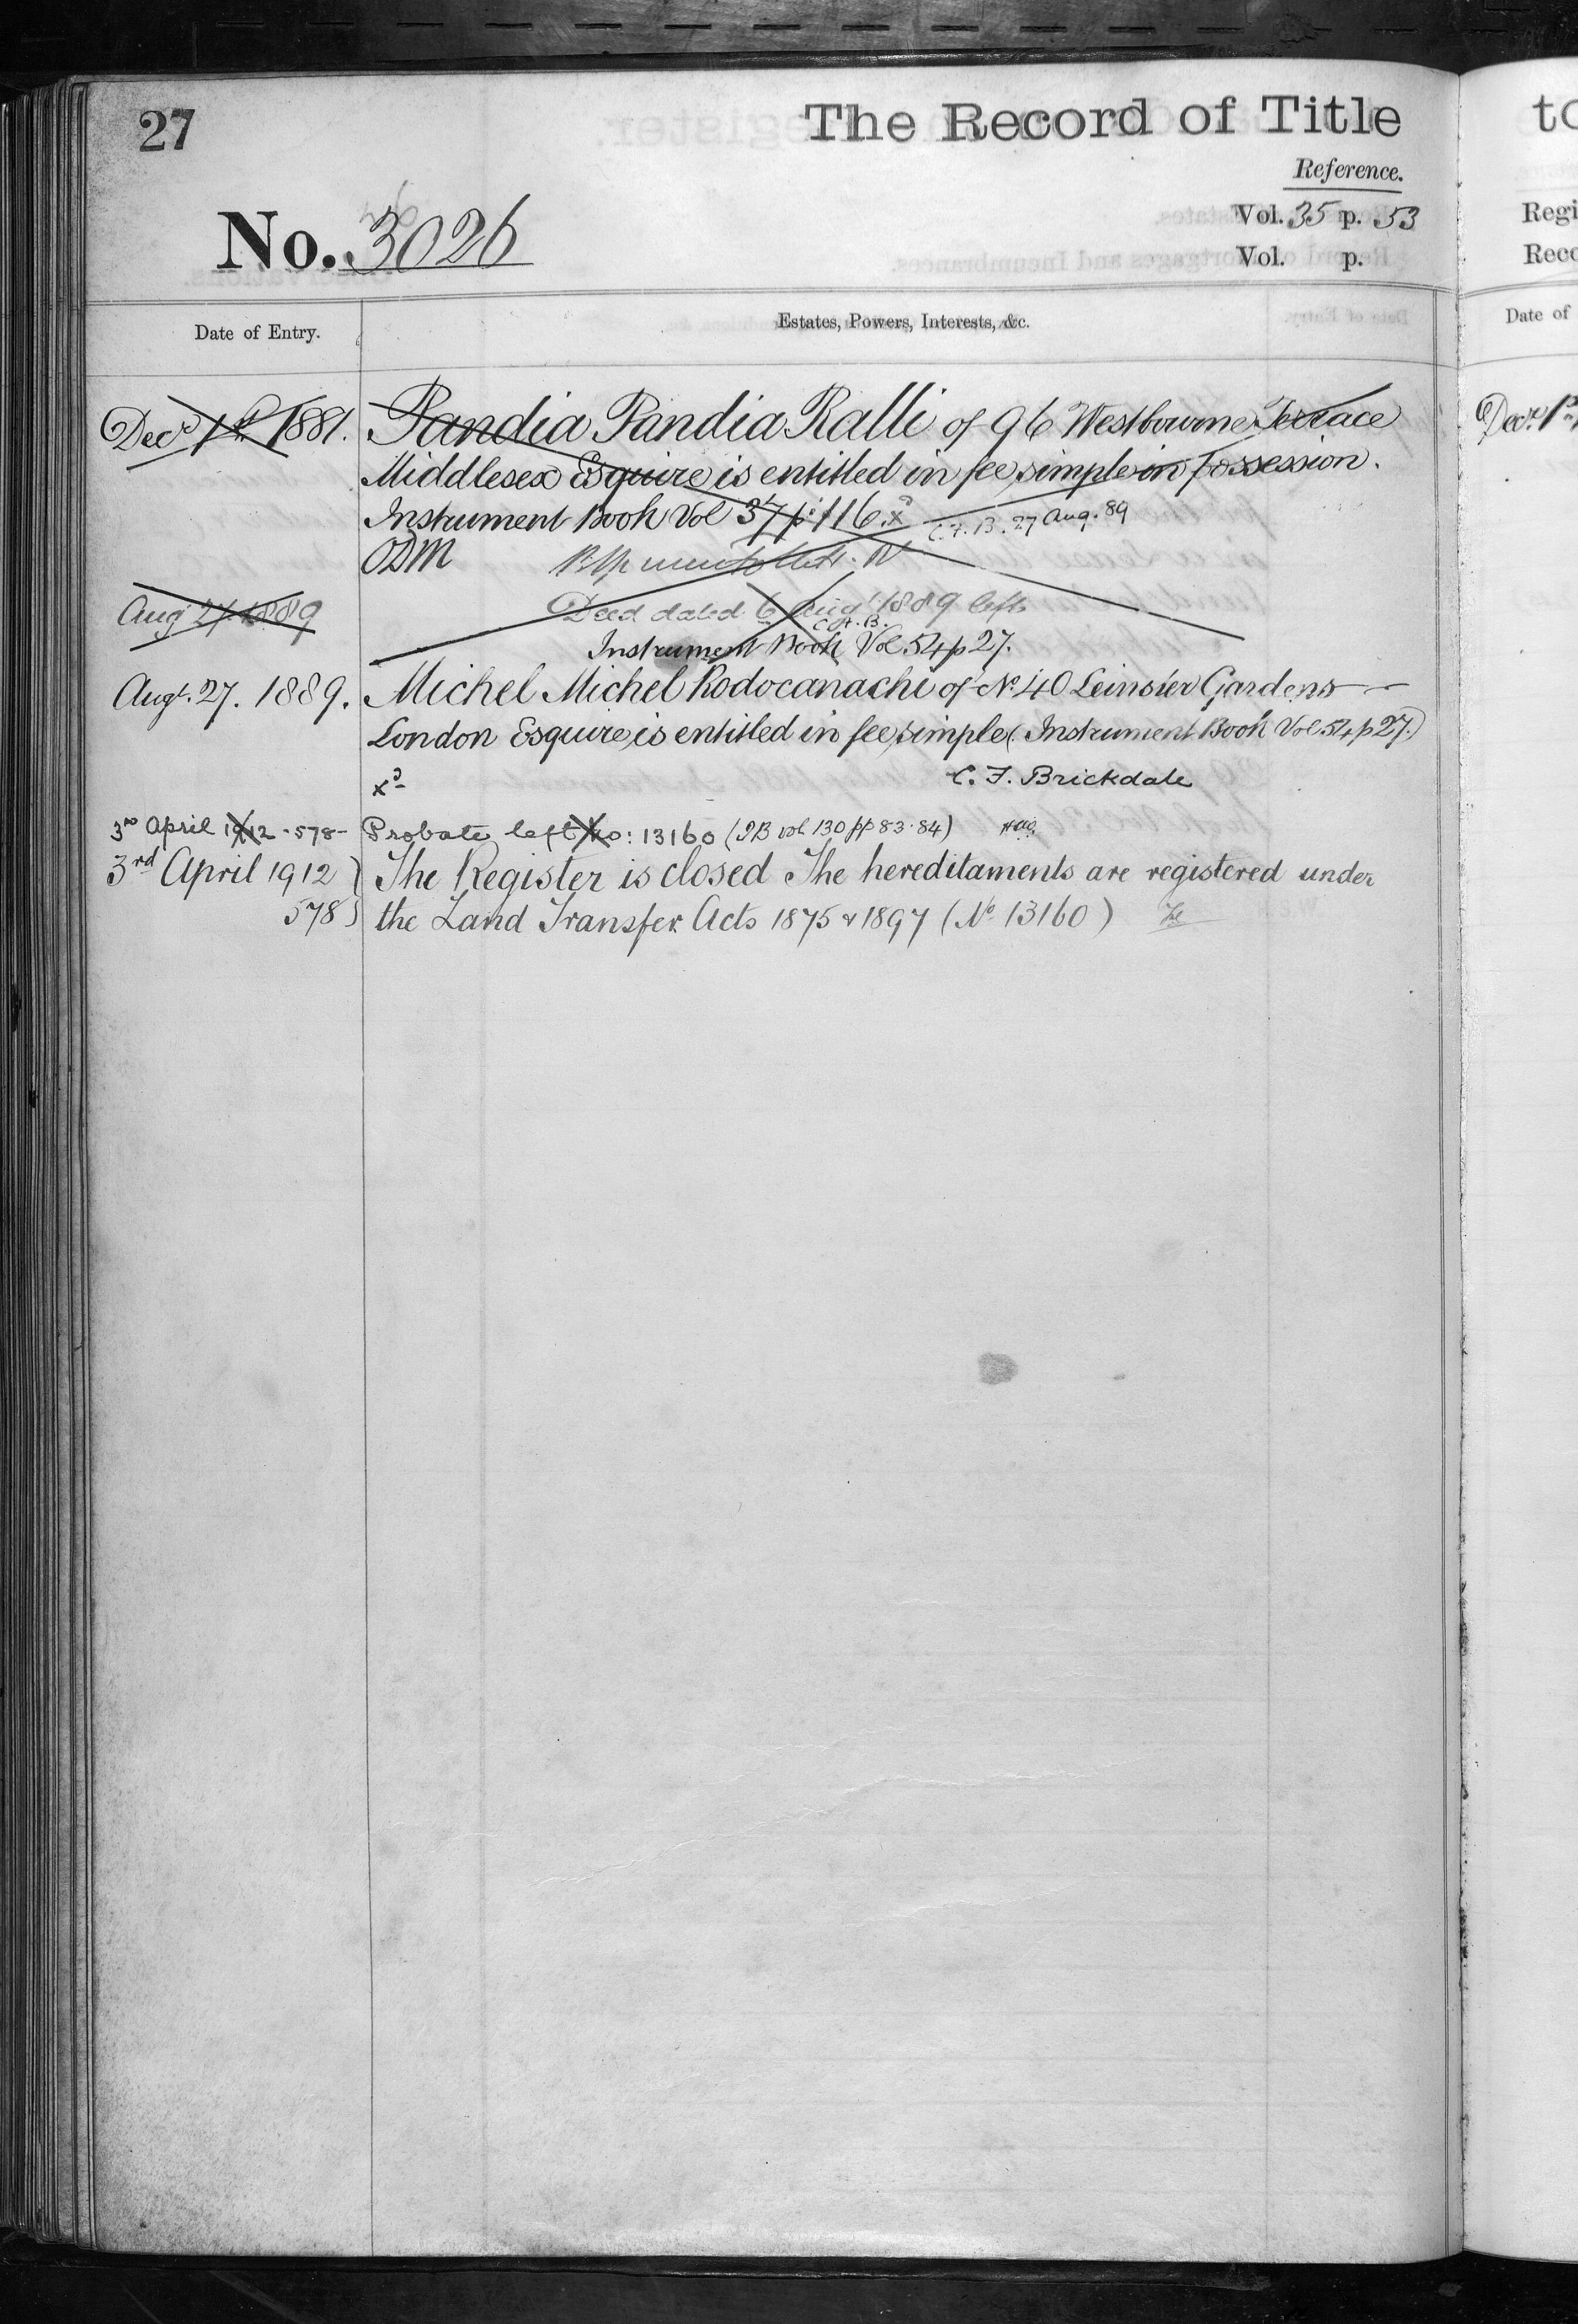 27
The Record of Title
Reference.
No. 3026
Vol. 35 p. 53
Vol. p.
Date of Entry.
Estates, Powers, Interests, &c.
Decr 1st 1881.
Pandia Pandia Ralli of 96 Westbourne Terrace
Middlesex Esquire is entitled in fee simple in Possession.
Instrument Book Vol 37 p. 116. x
C.F.B. 27 Aug. 89
ODM
Aug 27 1889
Deed dated 6 Augt 1889 left
C.F.B.
Instrument Book Vol 54 p 27.
Augt. 27. 1889.
Michel Michel Rodocanachi of No. 40 Leinster Gardens
London Esquire, is entitled in fee simple (Instrument Book Vol 54 p 27.)
C. F. Brickdale
3rd April 1912 - 578 -
Probate left No: 13160 (IB vol 130 pp 83.84)
3rd April 1912
578
The Register is closed The hereditaments are registered under
the Land Transfer Acts 1875 & 1897 (No 13160)
to
Regi
Reco
Date of
Decr 1st